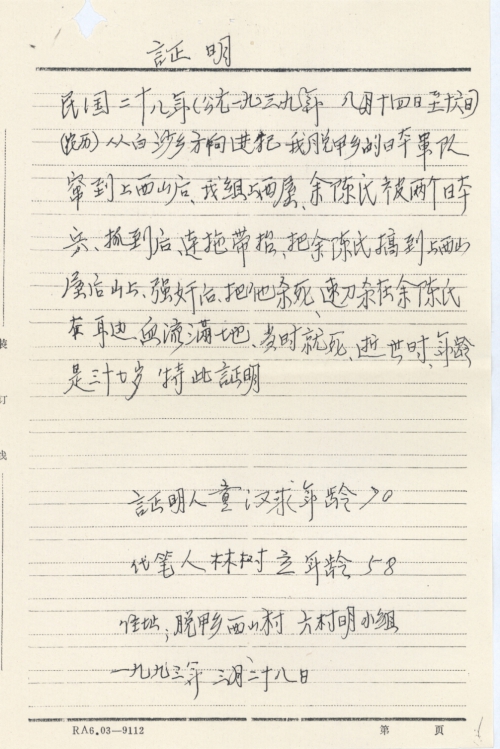 証明
民国二十八年(公元一九三九)年 八月十四日至十六间
(農历)从白沙乡方向进犯我脱甲乡的日本軍队
窜到上西山后、我组上西屋、余陈氏被两个日本
兵、抓到后、连拖带拉、把余陈氏搞到上西山
屋后山上、强奸后、把他杀死、速刀杀在余陈氏
左耳边、血流满地、当时就死、逝世时、年龄
是三十七岁 特此証明
証明人童汉求年龄70
代笔人林树立年龄58
住址；脱甲乡西山村 六村明小组
一九九三年三月二十八日
RA6.03—9112
第 页
装
订
线